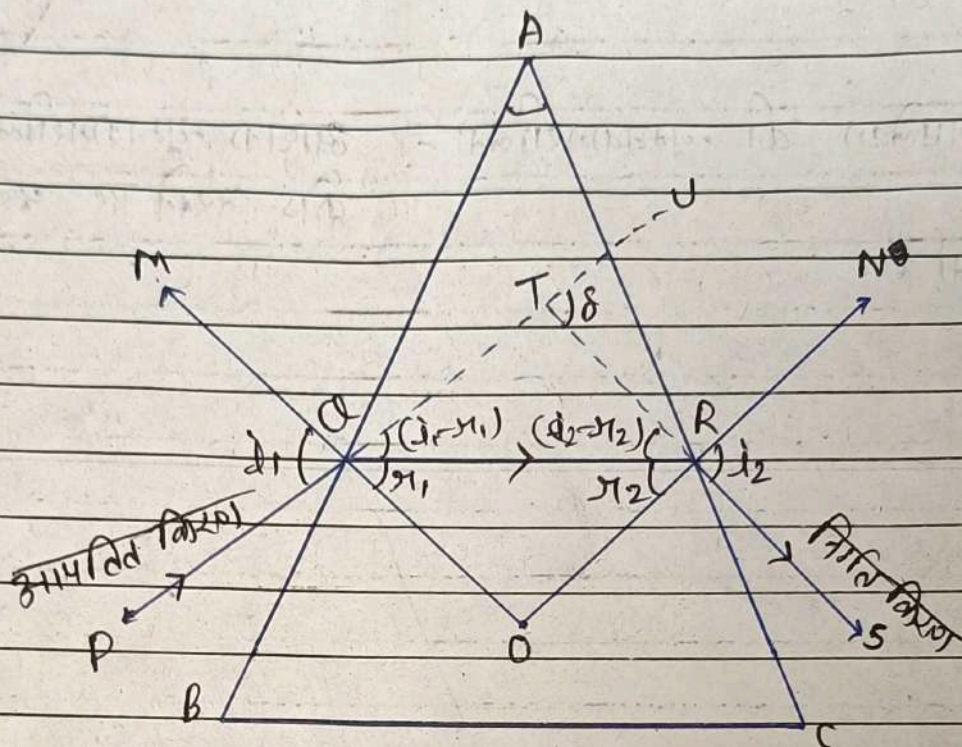 A
U
M
N
T δ
Q
(i₁-r₁)
(i₂-r₂)
R
i₁
r₁
r₂
i₂
आपतित किरण
निर्गत किरण
P
S
O
B
C